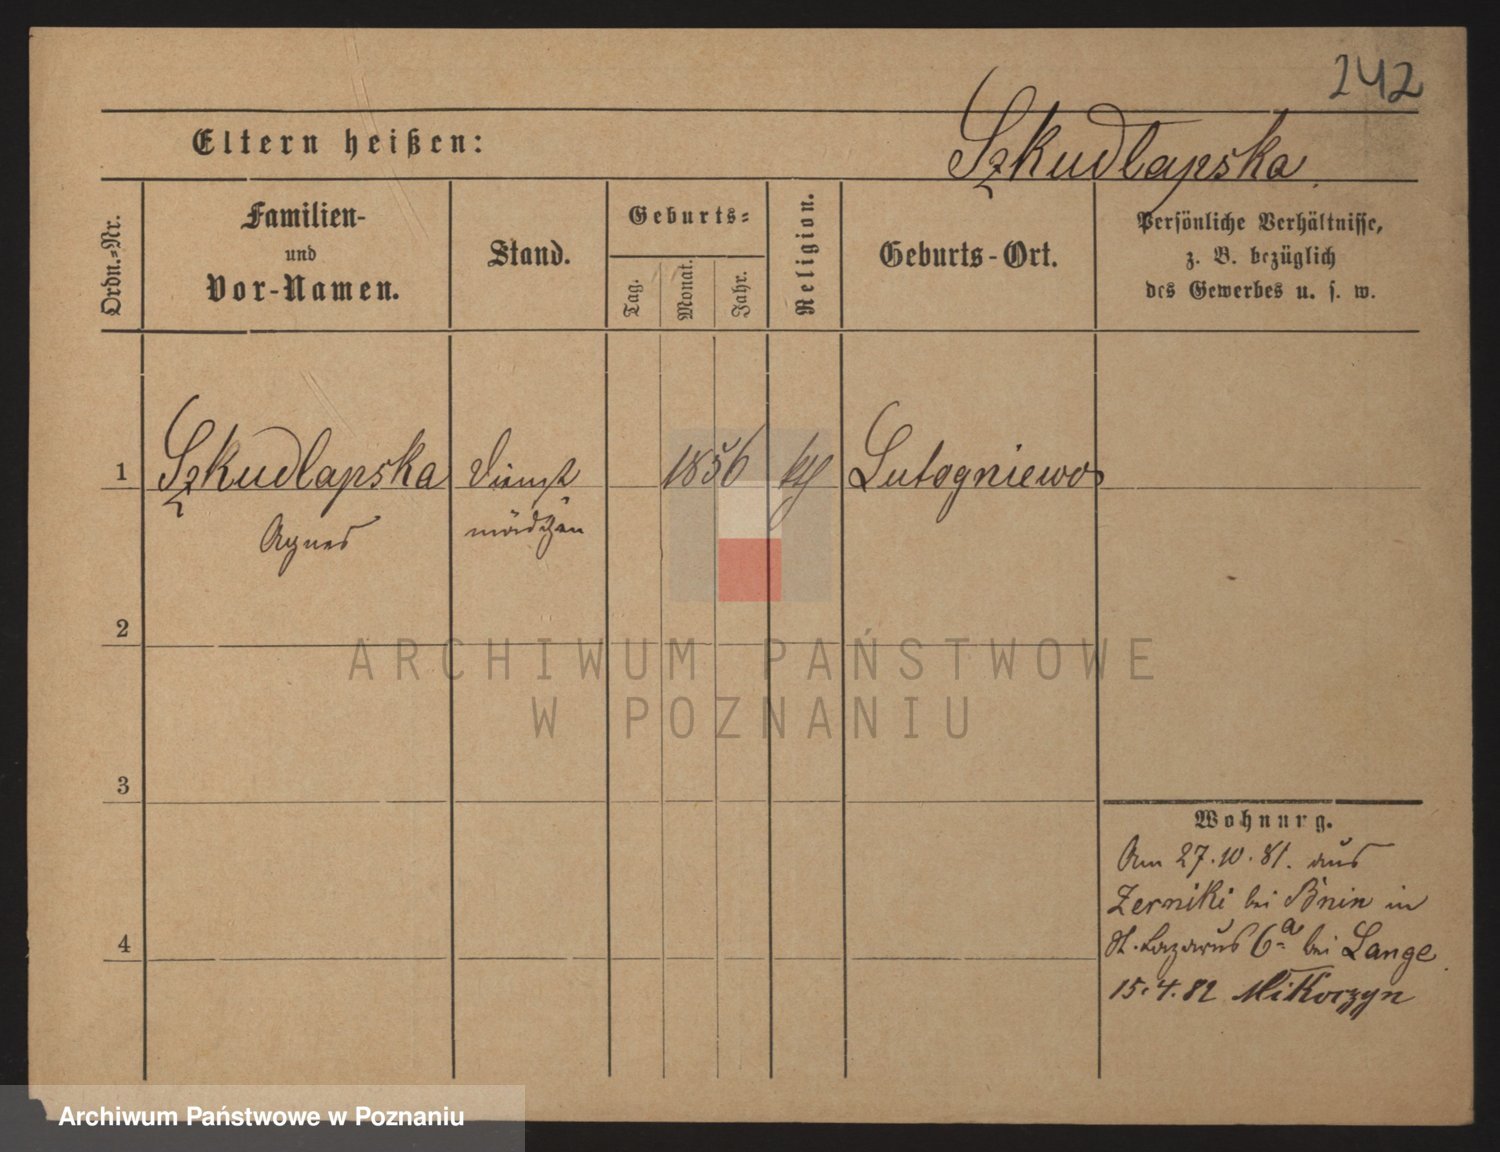 242
Eltern heißen:
Szkudlapska
Ordn.-Nr.
Familien-
und
Vor-Namen.
Stand.
Geburts-
Tag.
Monat.
Jahr.
Religion.
Geburts-Ort.
Persönliche Verhältnisse,
z. B. bezüglich
des Gewerbes u. s. w.
1 Szkudlapska Dienst 1856 kth Lutogniewo
Agnes mädchen
2
3
4
Wohnung.
Am 27.10.81. aus
Zerniki bei Bnin in
St. Lazarus 6a bei Lange
15.4.82 Mikorzyn
ARCHIWUM PAŃSTWOWE
W POZNANIU
Archiwum Państwowe w Poznaniu